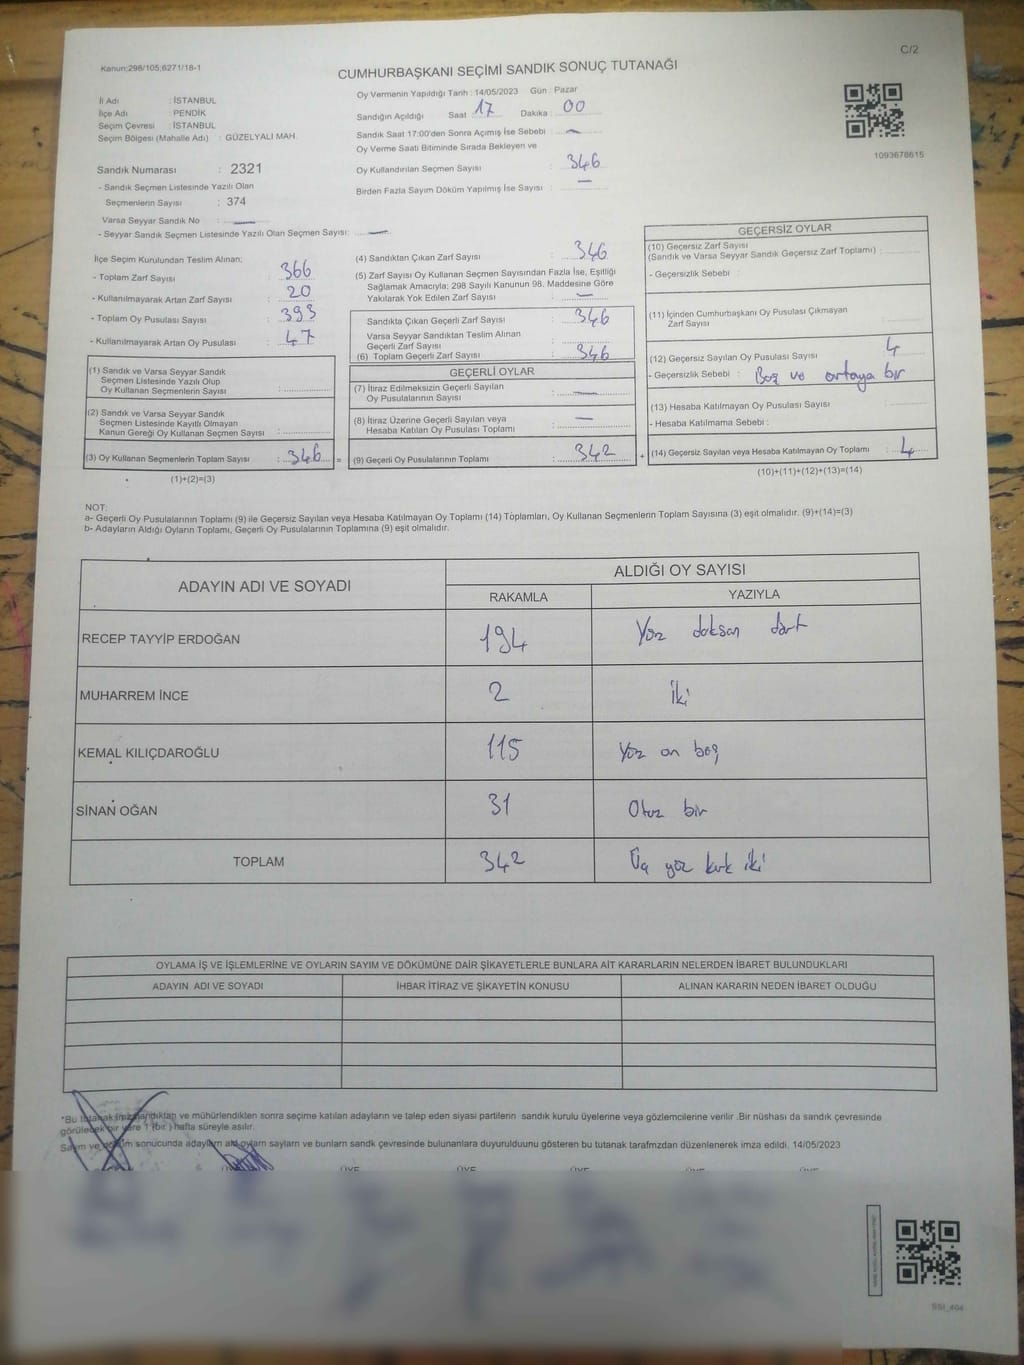 C/2
Kanun;298/105;6271/18-1
CUMHURBAŞKANI SEÇİMİ SANDIK SONUÇ TUTANAĞI
İl Adı : İSTANBUL
İlçe Adı : PENDİK
Seçim Çevresi : İSTANBUL
Seçim Bölgesi (Mahalle Adı) : GÜZELYALI MAH.
Oy Vermenin Yapıldığı Tarih : 14/05/2023 Gün : Pazar
Sandığın Açıldığı Saat : 17 Dakika : 00
Sandık Saat 17:00'den Sonra Açımış İse Sebebi : —
Oy Verme Saati Bitiminde Sırada Bekleyen ve
Oy Kullandırılan Seçmen Sayısı : 346
Birden Fazla Sayım Döküm Yapılmış İse Sayısı : —
1093678615
Sandık Numarası : 2321
- Sandık Seçmen Listesinde Yazılı Olan
Seçmenlerin Sayısı : 374
Varsa Seyyar Sandık No : —
- Seyyar Sandık Seçmen Listesinde Yazılı Olan Seçmen Sayısı: —
İlçe Seçim Kurulundan Teslim Alınan;
- Toplam Zarf Sayısı : 366
- Kullanılmayarak Artan Zarf Sayısı : 20
- Toplam Oy Pusulası Sayısı : 393
- Kullanılmayarak Artan Oy Pusulası : 47
(1) Sandık ve Varsa Seyyar Sandık
Seçmen Listesinde Yazılı Olup
Oy Kullanan Seçmenlerin Sayısı :
(2) Sandık ve Varsa Seyyar Sandık
Seçmen Listesinde Kayıtlı Olmayan
Kanun Gereği Oy Kullanan Seçmen Sayısı :
(3) Oy Kullanan Seçmenlerin Toplam Sayısı : 346 =
(1)+(2)=(3)
(4) Sandıktan Çıkan Zarf Sayısı : 346
(5) Zarf Sayısı Oy Kullanan Seçmen Sayısından Fazla İse, Eşitliği
Sağlamak Amacıyla; 298 Sayılı Kanunun 98. Maddesine Göre
Yakılarak Yok Edilen Zarf Sayısı : —
Sandıkta Çıkan Geçerli Zarf Sayısı : 346
Varsa Seyyar Sandıktan Teslim Alınan
Geçerli Zarf Sayısı :
(6) Toplam Geçerli Zarf Sayısı : 346
GEÇERLİ OYLAR
(7) İtiraz Edilmeksizin Geçerli Sayılan
Oy Pusulalarının Sayısı : —
(8) İtiraz Üzerine Geçerli Sayılan veya
Hesaba Katılan Oy Pusulası Toplamı : —
(9) Geçerli Oy Pusulalarının Toplamı : 342 +
GEÇERSİZ OYLAR
(10) Geçersiz Zarf Sayısı
(Sandık ve Varsa Seyyar Sandık Geçersiz Zarf Toplamı) :
- Geçersizlik Sebebi :
(11) İçinden Cumhurbaşkanı Oy Pusulası Çıkmayan
Zarf Sayısı :
(12) Geçersiz Sayılan Oy Pusulası Sayısı : 4
- Geçersizlik Sebebi : Boş ve ortaya bir
(13) Hesaba Katılmayan Oy Pusulası Sayısı :
- Hesaba Katılmama Sebebi :
(14) Geçersiz Sayılan veya Hesaba Katılmayan Oy Toplamı : 4
(10)+(11)+(12)+(13)=(14)
NOT:
a- Geçerli Oy Pusulalarının Toplamı (9) ile Geçersiz Sayılan veya Hesaba Katılmayan Oy Toplamı (14) Toplamları, Oy Kullanan Seçmenlerin Toplam Sayısına (3) eşit olmalıdır. (9)+(14)=(3)
b- Adayların Aldığı Oyların Toplamı, Geçerli Oy Pusulalarının Toplamına (9) eşit olmalıdır.
ADAYIN ADI VE SOYADI ALDIĞI OY SAYISI
RAKAMLA YAZIYLA
RECEP TAYYİP ERDOĞAN 194 Yüz doksan dört
MUHARREM İNCE 2 İki
KEMAL KILIÇDAROĞLU 115 Yüz on beş
SİNAN OĞAN 31 Otuz bir
TOPLAM 342 Üç yüz kırk iki
OYLAMA İŞ VE İŞLEMLERİNE VE OYLARIN SAYIM VE DÖKÜMÜNE DAİR ŞİKAYETLERLE BUNLARA AİT KARARLARIN NELERDEN İBARET BULUNDUKLARI
ADAYIN ADI VE SOYADI İHBAR İTİRAZ VE ŞİKAYETİN KONUSU ALINAN KARARIN NEDEN İBARET OLDUĞU
*Bu tutanak imzalandıktan ve mühürlendikten sonra seçime katılan adayların ve talep eden siyasi partilerin sandık kurulu üyelerine veya gözlemcilerine verilir .Bir nüshası da sandık çevresinde
görülecek bir yere 1 (bir ) hafta süreyle asılır.
Sayım ve döküm sonucunda adayların aldı oyların sayların ve bunların sandk çevresinde bulunanlara duyurulduunu gösteren bu tutanak tarafmzdan düzenlenerek imza edildi. 14/05/2023
SSI_404